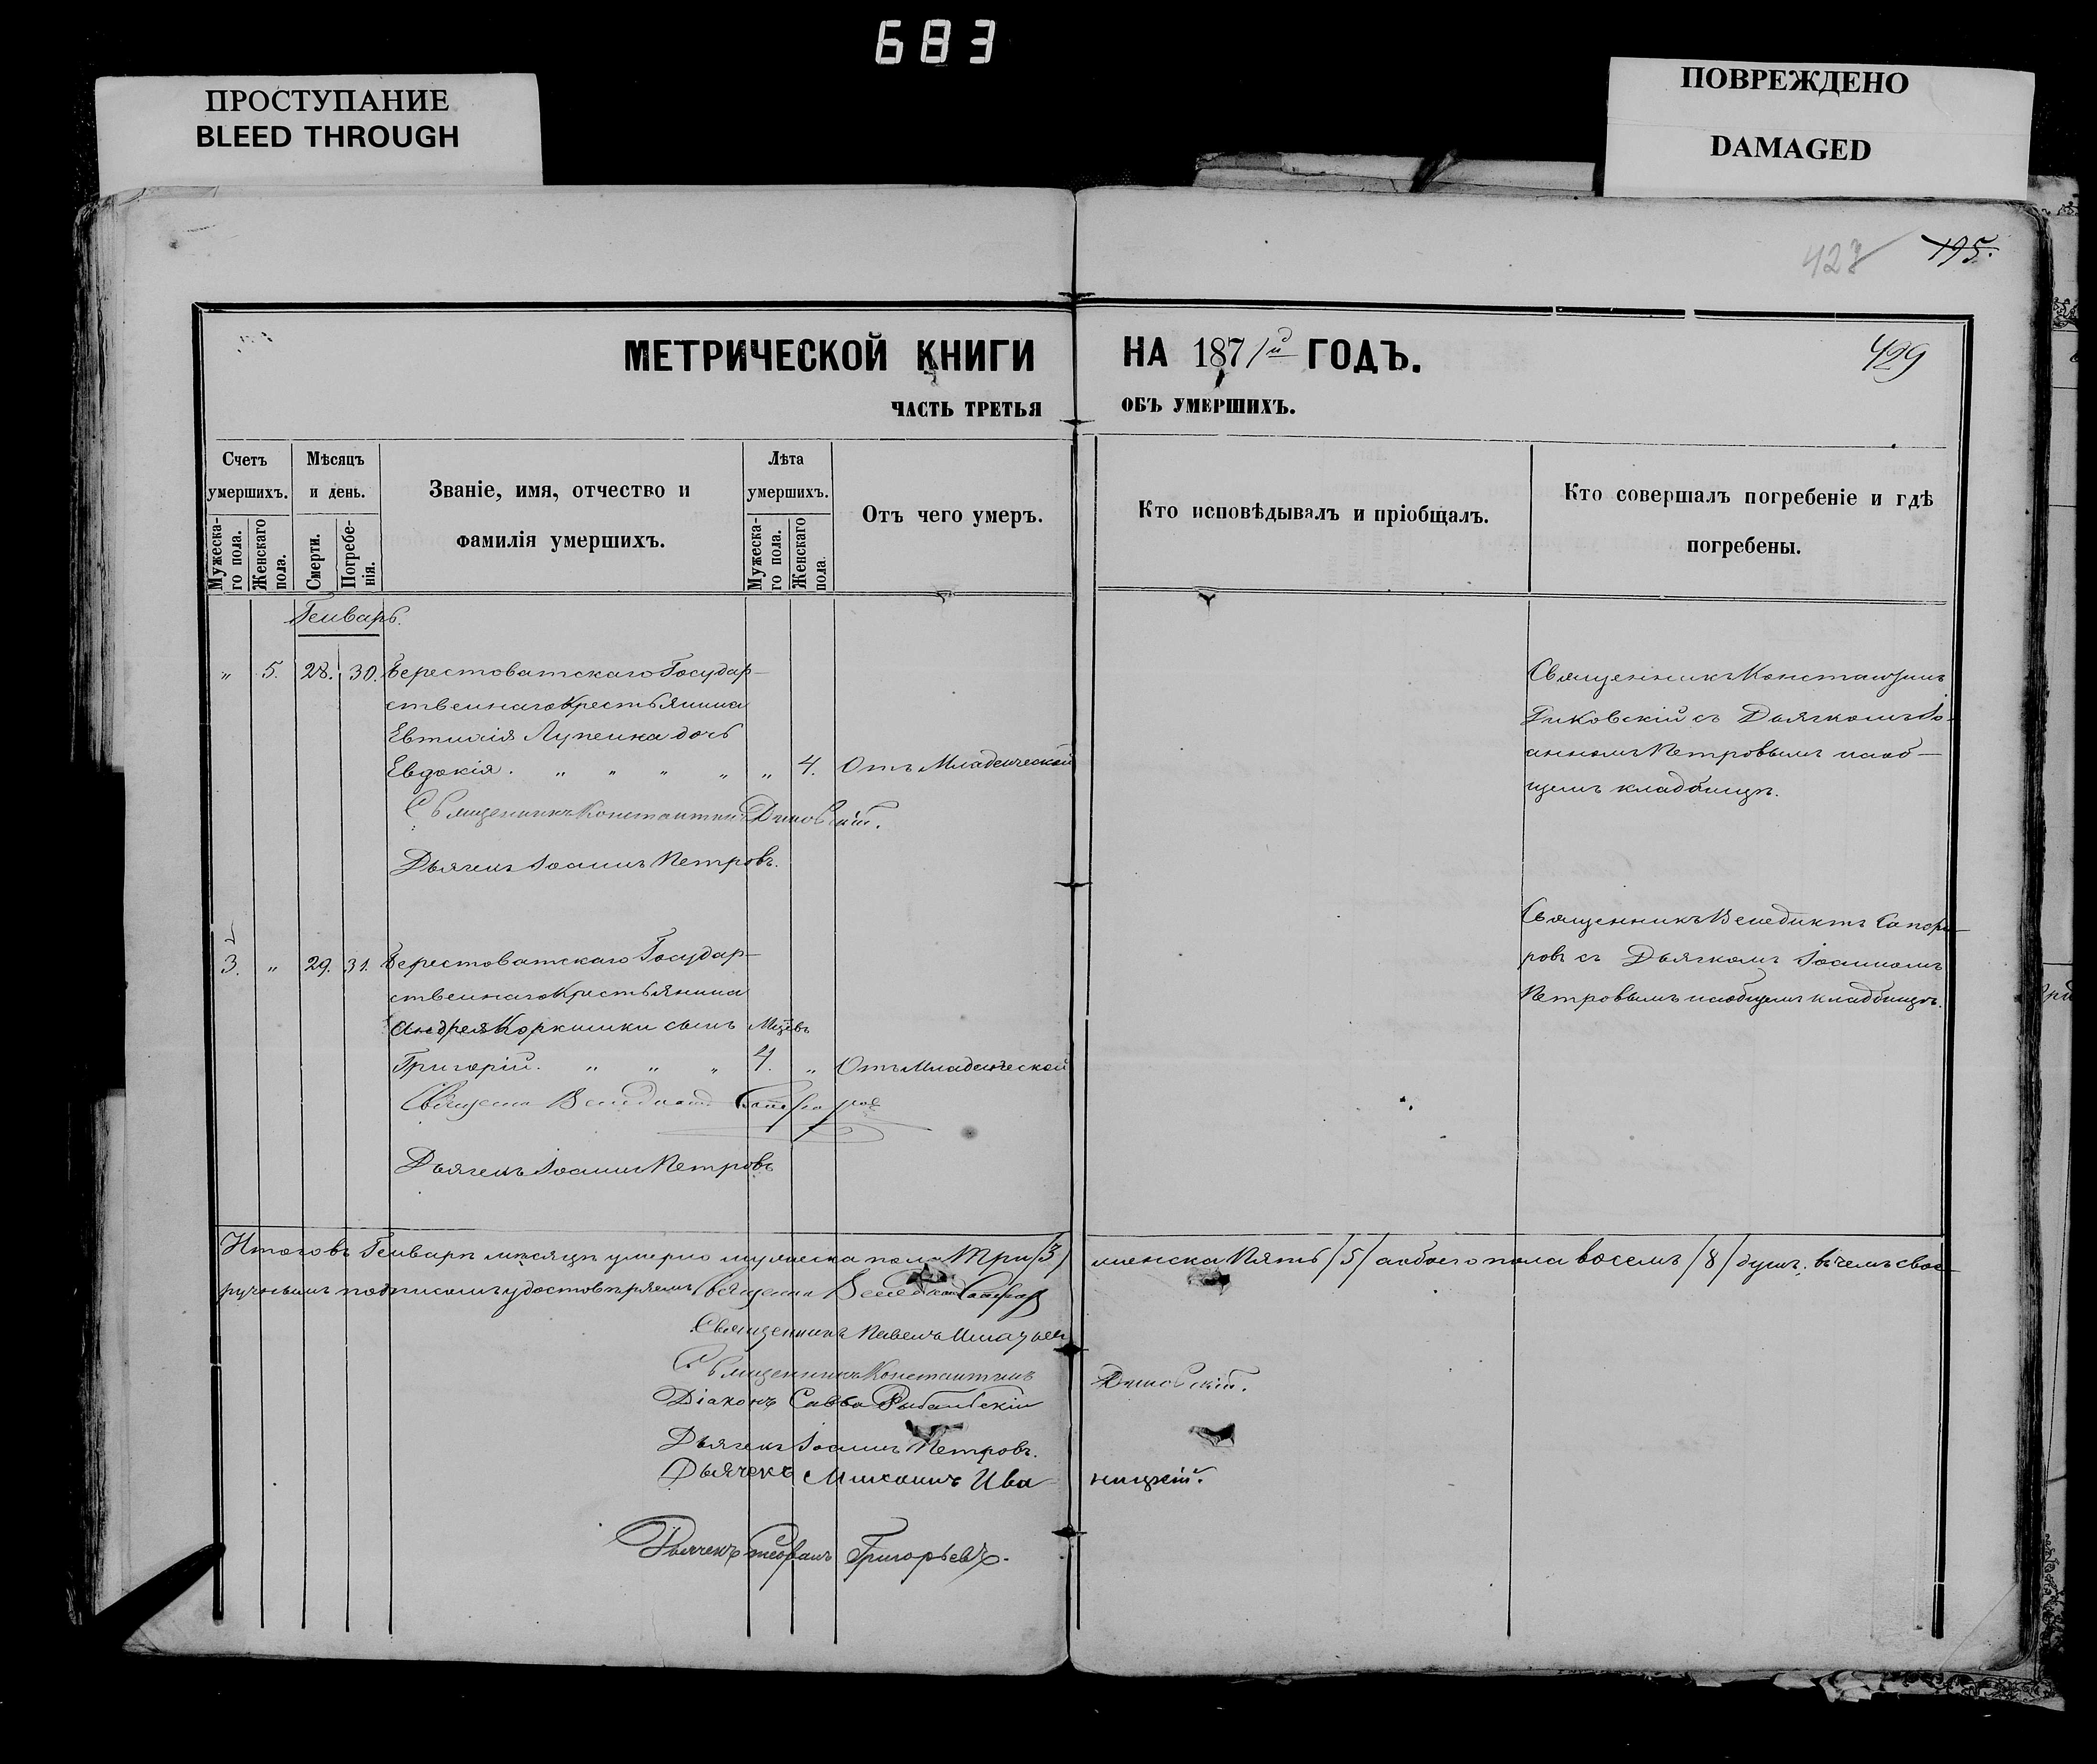 683
ПРОСТУПАНИЕ
BLEED THROUGH
ПОВРЕЖДЕНО
DAMAGED
423 195.
МЕТРИЧЕСКОЙ КНИГИ НА 1871й ГОДЪ.
429
ЧАСТЬ ТРЕТЬЯ ОБЪ УМЕРШИХЪ.
Счетъ умершихъ.
Мужеска-го пола.
Женскаго пола.
Мѣсяцъ и день.
Смерти.
Погребе-нія.
Званіе, имя, отчество и
фамилія умершихъ.
Лѣта умершихъ.
Мужеска-го пола.
Женскаго пола.
Отъ чего умеръ.
Кто исповѣдывалъ и пріобщалъ.
Кто совершалъ погребеніе и гдѣ
погребены.
Генварь.
„ 5. 28. 30. Берестоватскаго Государ-
ственнаго Крестьянина
Евтихія Лупенка дочь
Евдокія. „ „ „ „ „ 4. Отъ Младенческой
Священникъ Константинъ
Дьячкомъ Іо-
анномъ Петровымъ на об-
щемъ кладбищѣ.
Священникъ Константинъ
Дьячекъ Іоаннъ Петровъ.
3. „ 29. 31. Берестоватскаго Государ-
ственнаго Крестьянина
Андрея Коркишки сынъ Мцевъ
Григорій. „ „ „ 4. „ Отъ Младенческой
Священникъ Венедиктъ
ровъ съ Дьячкомъ Іоанномъ
Петровымъ на общемъ кладбищѣ.
Венедиктъ
Дьячекъ Іоаннъ Петровъ
Итого въ Генварѣ мѣсяцѣ умерло мужеска пола Три /3/ женска Пять /5/ а обоего пола восемь /8/ душъ, въ чемъ свое-
ручнымъ подписомъ удостовѣряемъ
Священникъ Павелъ
Священникъ Константинъ
Діаконъ Савва
Дьячекъ Іоаннъ Петровъ.
Дьячекъ Михаилъ Ива ницкій.
Дьячекъ Ѳеофанъ Григорьевъ.